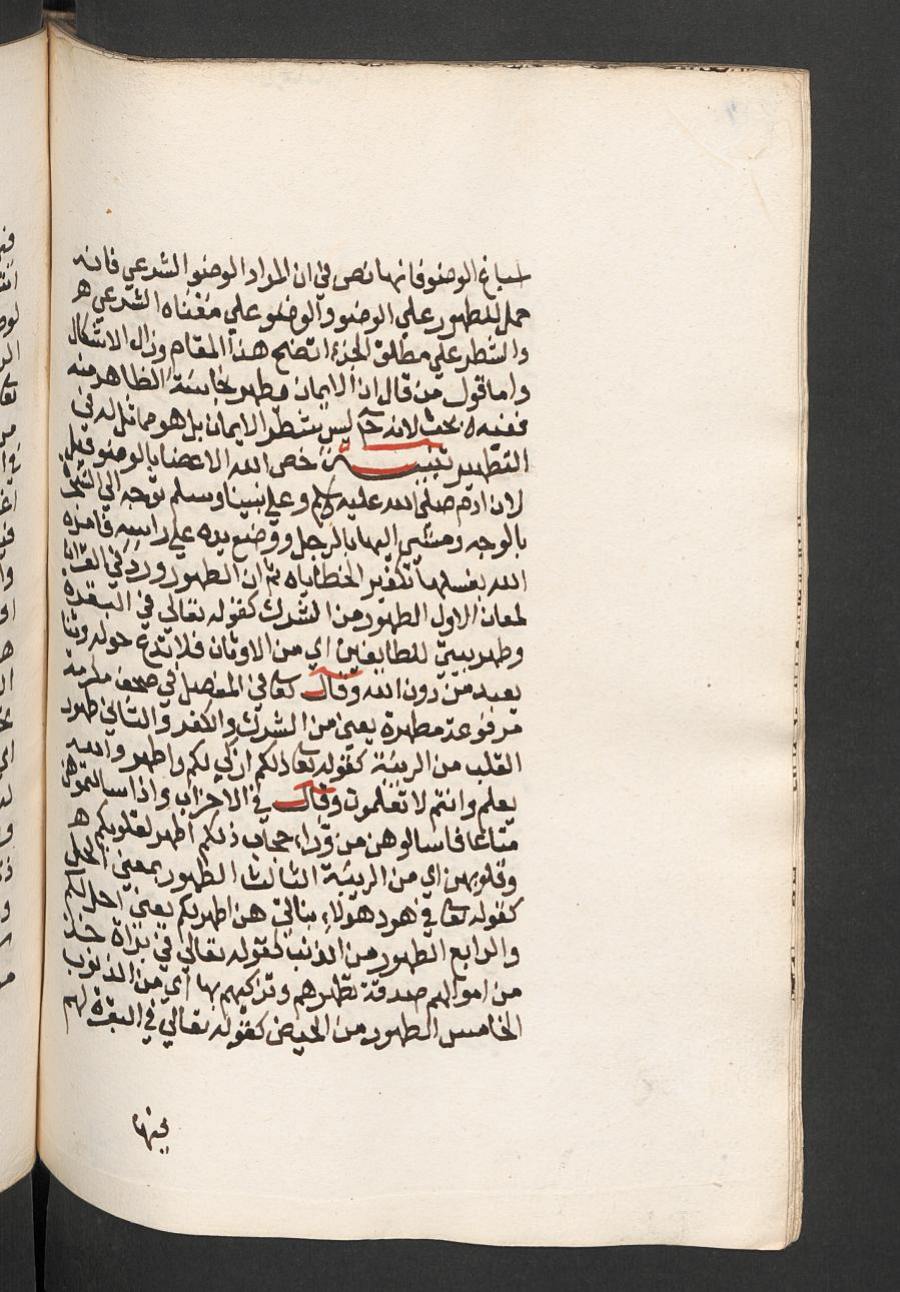 اسباغ الوضو فانها نص في ان المراد الوضو الشرعي فانه
حمل للطهور علي الوضو والوضو علي معناه الشرعي
والشطر علي مطلق الجزء اتضح هذا المقام وزال الاشكال
واما قول من قال ان الايمان مطهر نجاسة الظاهر منه
ففيه بحث لانه ح ليس شطر الايمان بل هو مماثل له في
التطهير تنبيه خص الله الاعضا بالوضو قيل
لان ادم صلي الله عليه وسلم وعلي نبينا وسلم توجه الي الشجرة
بالوجه ومشي اليها بالرجل ووضع يده علي راسه فامره
الله بغسلها تكفير الخطاياه ثم ان الطهور ورد في القران
لمعان الاول الطهور من الشرك كقوله تعالي في البقرة
وطهر بيتي للطايفين اي من الاوثان فلا تدع حوله وثنا
يعبد من دون الله وقال تعا في المفصل في صحف مكرمة
مرفوعة مطهرة يعني من الشرك والكفر والثاني طهور
القلب من الريبة كقوله تعا ذلكم ازكي لكم واطهر والله
يعلم وانتم لا تعلمون وقال في الاحزاب واذا سالتموهن
متاعا فاسالوهن من ورا حجاب ذلكم اطهر لقلوبكم
وقلوبهن اي من الريبة الثالث الطهور بمعني الحل
كقوله تعا في هود هولاء بناتي هن اطهر لكم يعني احل لكم
والرابع الطهور من الذنب كقوله تعالي في براة خذ
من اموالهم صدقة تطهرهم وتزكيهم بها اي من الذنوب
الخامس الطهور من الحيض كقوله تعالي في البقرة لهم